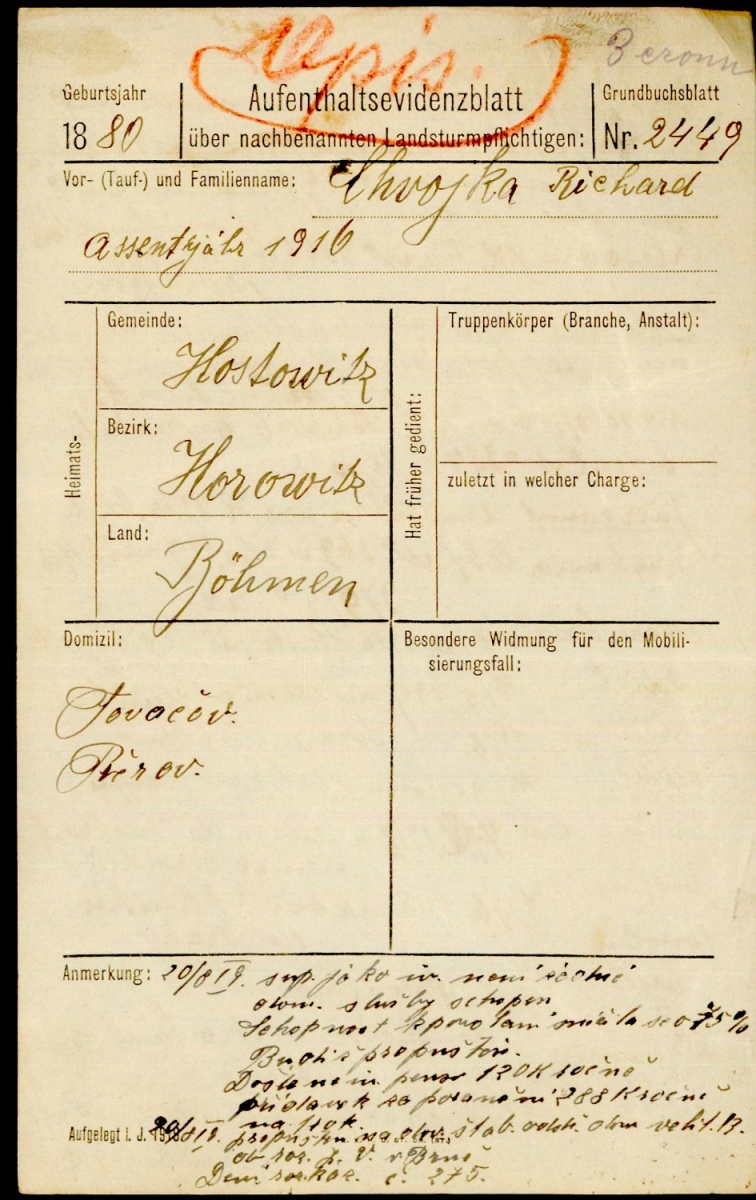 zápis.
Beroun
Geburtsjahr
1880
Aufenthaltsevidenzblatt
über nachbenannten Landsturmpflichtigen:
Grundbuchsblatt
Nr. 2449
Vor- (Tauf-) und Familienname: Chvojka Richard
Assentjahr 1916
Heimats-
Gemeinde:
Hostowitz
Bezirk:
Horowitz
Land:
Böhmen
Hat früher gedient:
Truppenkörper (Branche, Anstalt):
zuletzt in welcher Charge:
Domizil:
Tovačov.
Přerov.
Besondere Widmung für den Mobili-
sierungsfall:
Anmerkung: 20/8 19. sup. jako inv. není žádné
dom. služby schopen
Schopnost k povolání snížila se o 75%
Budiž propuštěn.
Dostane in. pensi 120K ročně
přídavek za poranění 288K ročně
na 1 rok
Aufgelegt i. J. 191
20/8 19. propuštěn
v Brně
Denní rozkaz. č. 275.